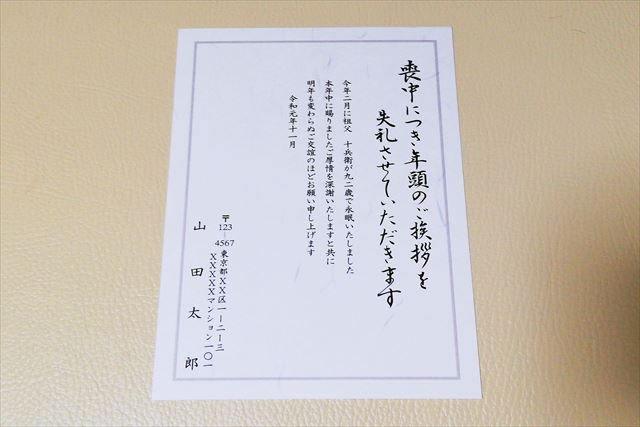 喪中につき年頭のご挨拶を
失礼させていただきます
今年二月に祖父　十兵衛が九二歳で永眠いたしました
本年中に賜りましたご厚情を深謝いたしますと共に
明年も変わらぬご交誼のほどお願い申し上げます
令和元年十一月
〒123-4567
東京都XX区一ー二ー三
XXXXXマンション一〇一
山田太郎